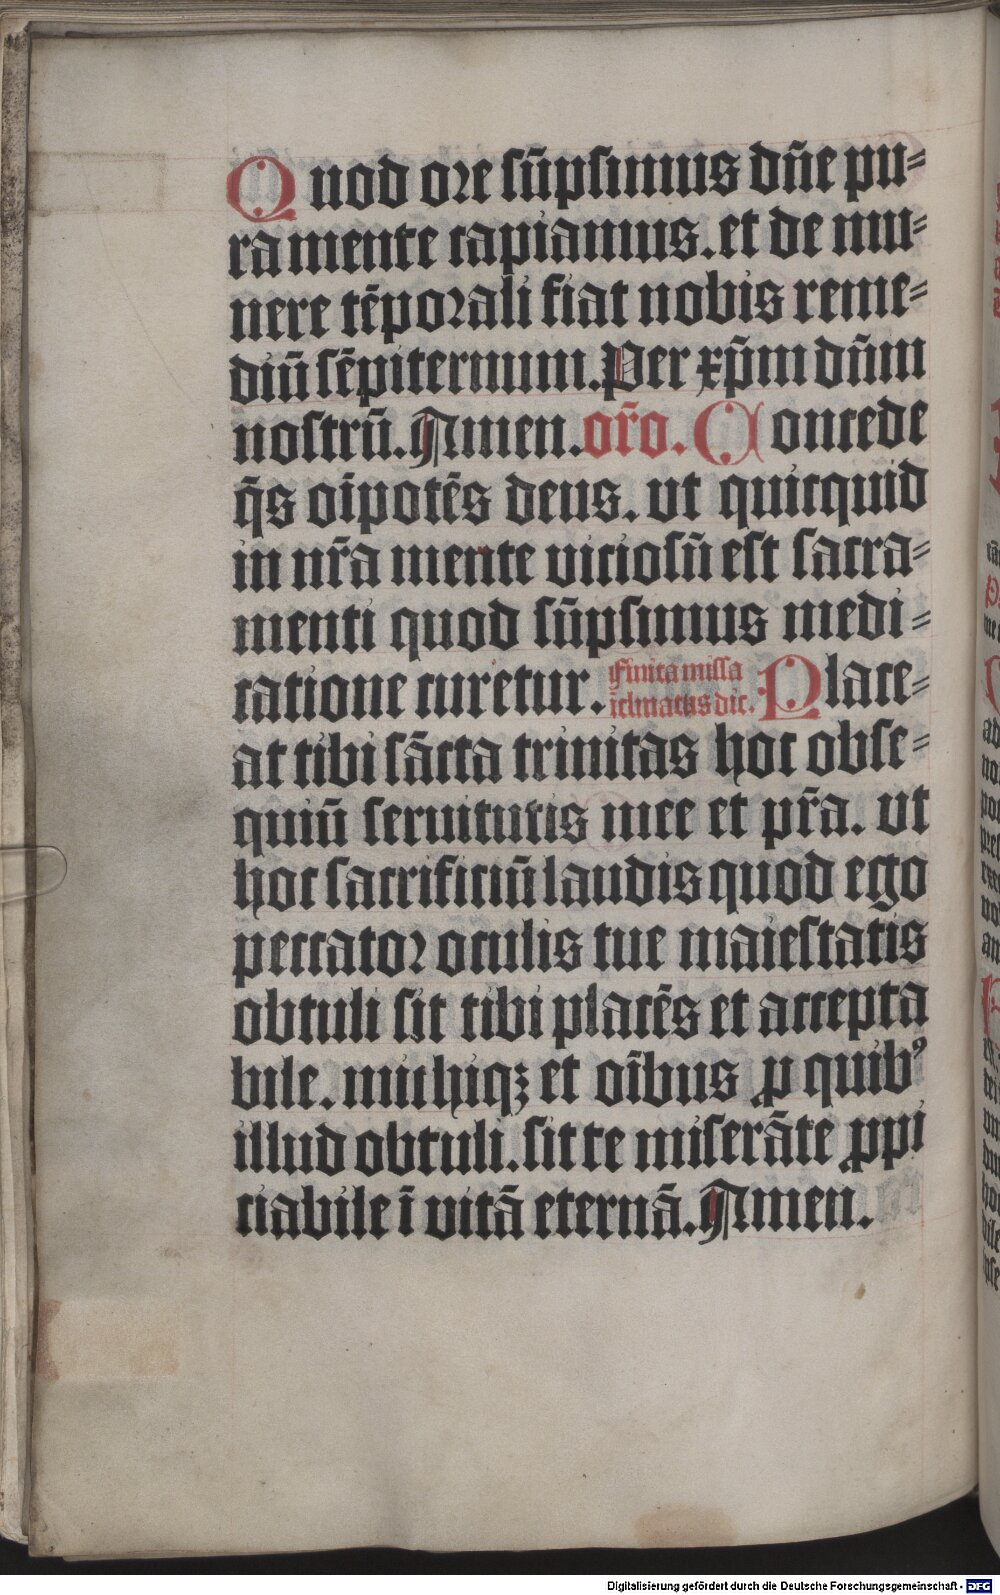 Quod ore sūpsimus dn̄e pu⸗
ra mente capiamus. et de mu⸗
nere tēporali fiat nobis reme⸗
diū sēpiternum. Per xp̄m dn̄m
nostrū. Amen. or̄o. Concede
q̄s oīpotēs deus. ut quicquid
in nr̄a mente viciosū est sacra⸗
menti quod sūpsimus medi⸗
catione curetur. Finita missa
īclinatus dic. Place⸗
at tibi sācta trinitas hoc obse⸗
quiū seruitutis mee et pr̄a. ut
hoc sacrificiū laudis quod ego
peccator oculis tue maiestatis
obtuli sit tibi placēs et accepta
bile. michiqꝫ et oībus ꝓ quibꝰ
illud obtuli. sit te miserāte ꝓpi
ciabile ī vitā eternā. Amen.
Digitalisierung gefördert durch die Deutsche Forschungsgemeinschaft - DFG